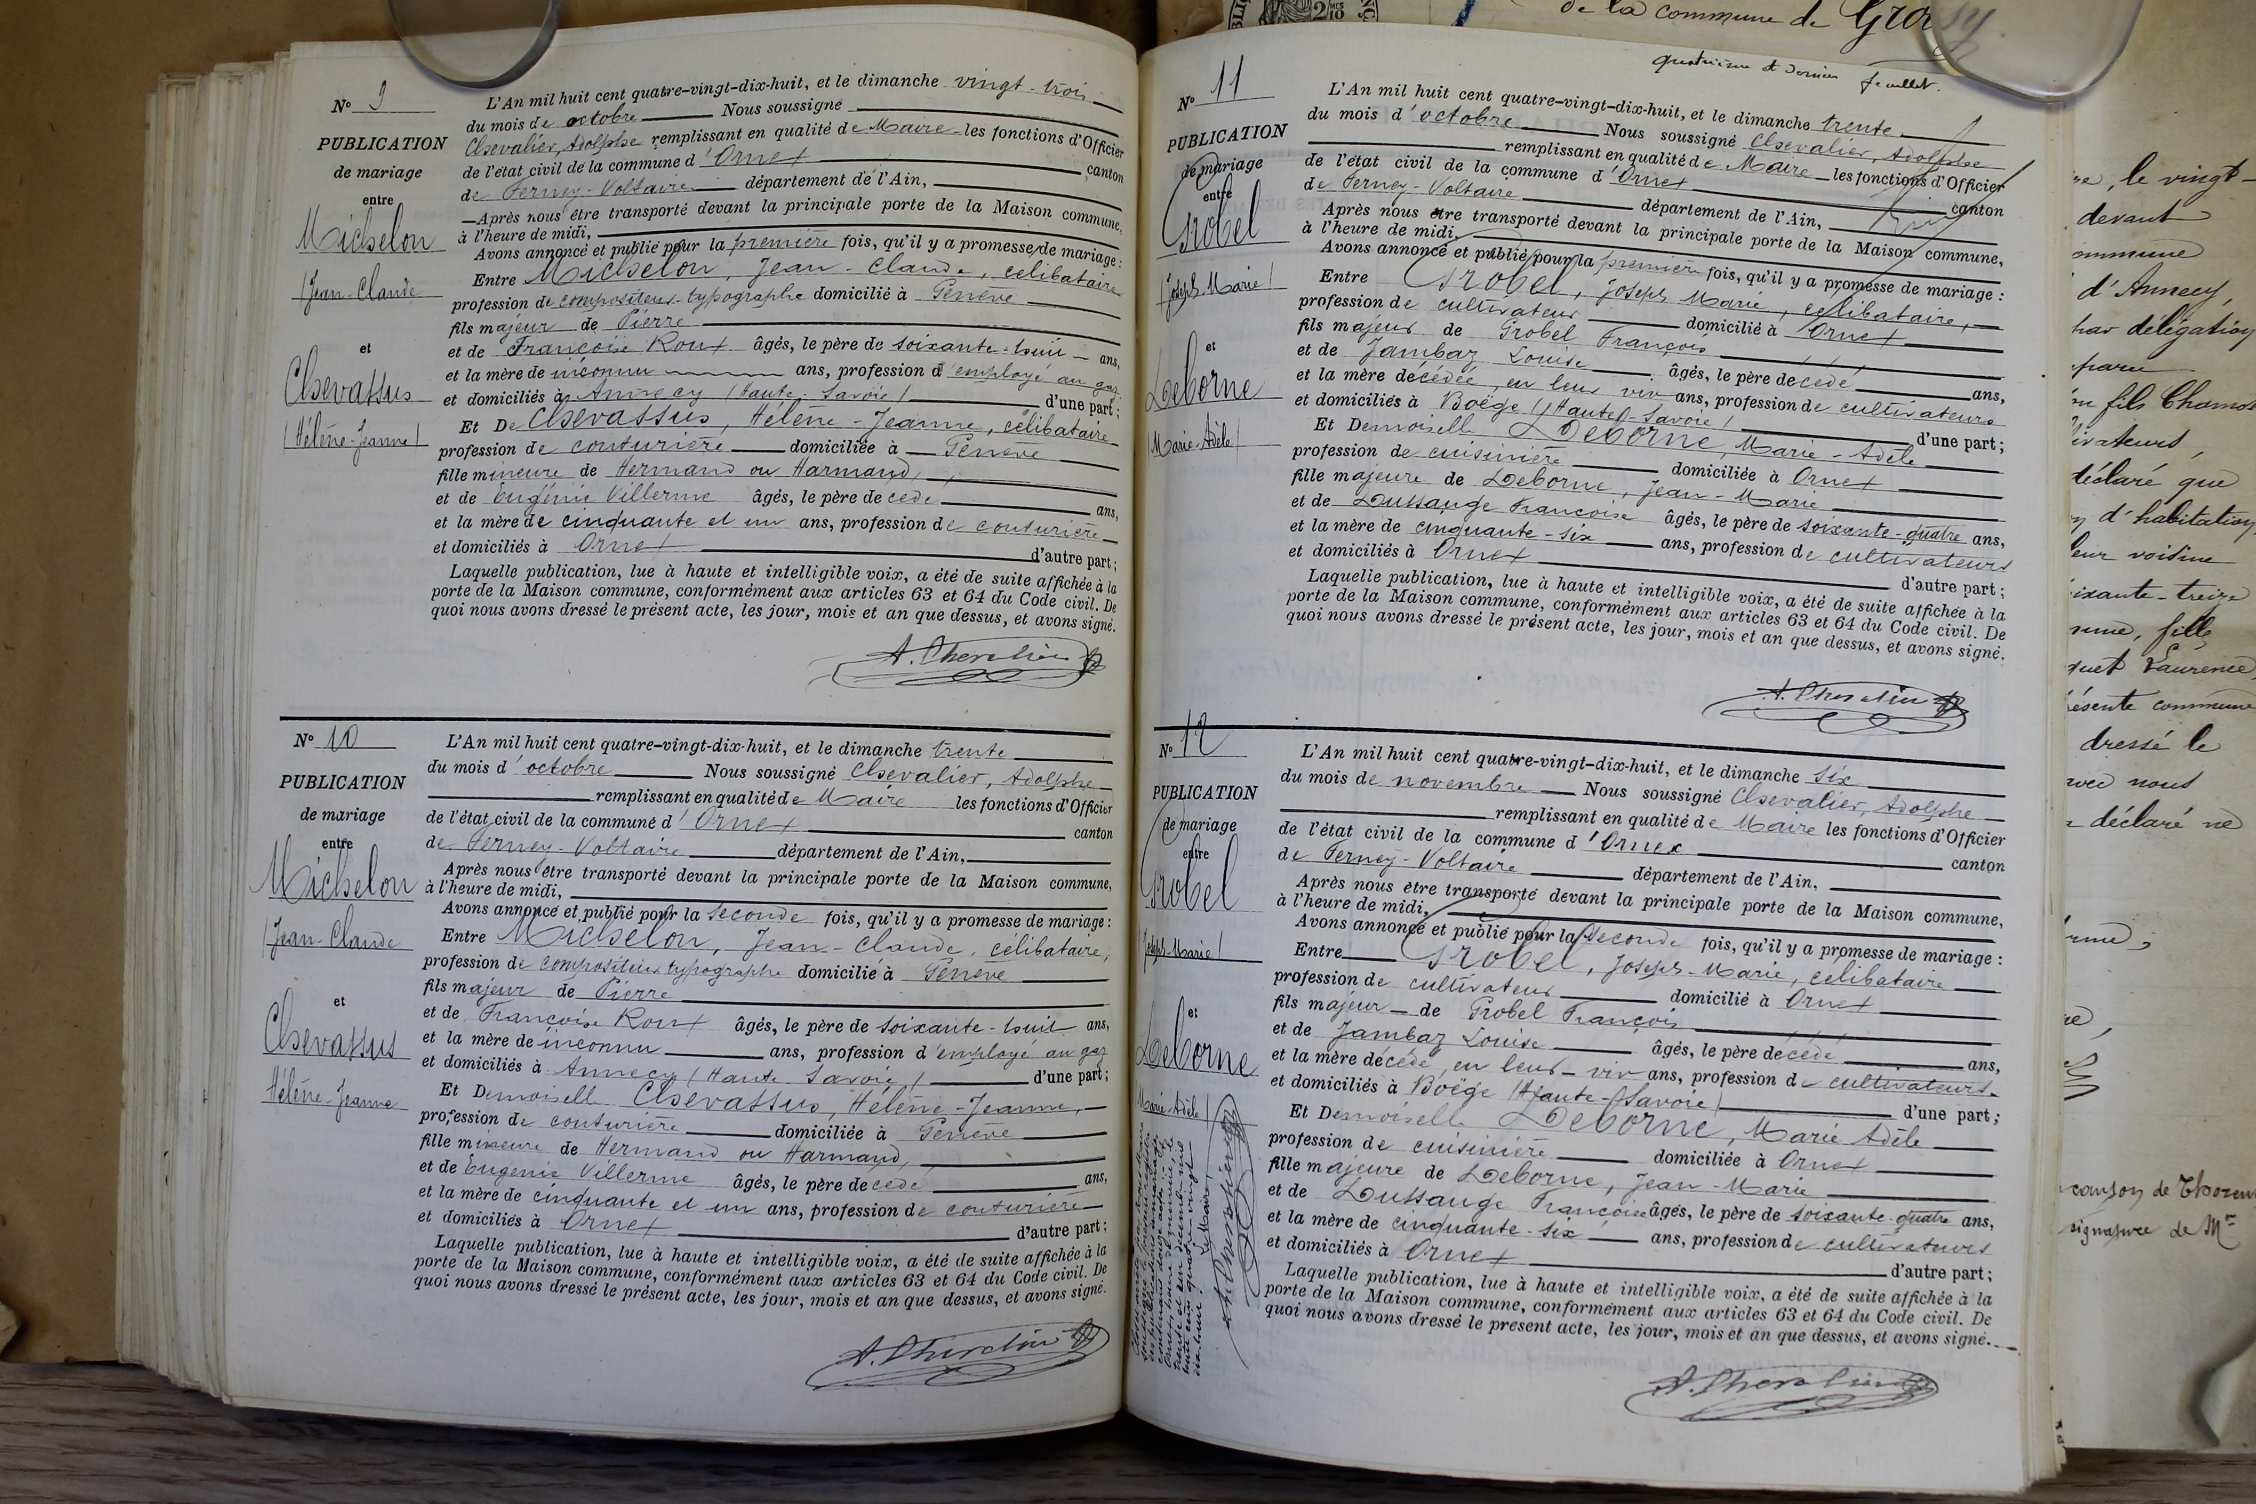 de la commune de
quatrième et dernier
feuillet.
N° 9
PUBLICATION
de mariage
entre
Michelon
(Jean-Claude
et
Chevassus
(Hélène-Jeanne)
L'An mil huit cent quatre-vingt-dix-huit, et le dimanche vingt-trois
du mois de octobre Nous soussigné
Chevalier, Adolphe remplissant en qualité de Maire les fonctions d'Officier
de l'état civil de la commune d'Ornex canton
de Ferney-Voltaire département de l'Ain,
Après nous être transporté devant la principale porte de la Maison commune,
à l'heure de midi,
Avons annoncé et publié pour la première fois, qu'il y a promesse de mariage :
Entre Michelon, Jean-Claude, célibataire
profession de compositeur-typographe domicilié à Genève
fils majeur de Pierre
et de Françoise Roux âgés, le père de soixante-huit ans,
et la mère de inconnu ans, profession d'employé au gaz
et domiciliés à Annecy (Haute-Savoie) d'une part ;
Et De Chevassus, Hélène-Jeanne, célibataire
profession de couturière domiciliée à Genève
fille mineure de Hermand ou Harmand,
et de Eugénie Villerme âgés, le père décédé ans,
et la mère de cinquante et un ans, profession de couturière
et domiciliés à Ornex d'autre part ;
Laquelle publication, lue à haute et intelligible voix, a été de suite affichée à la
porte de la Maison commune, conformément aux articles 63 et 64 du Code civil. De
quoi nous avons dressé le présent acte, les jour, mois et an que dessus, et avons signé.
A. Chevalier
N° 10
PUBLICATION
de mariage
entre
Michelon
(Jean-Claude
et
Chevassus
Hélène-Jeanne
L'An mil huit cent quatre-vingt-dix-huit, et le dimanche trente
du mois d'octobre Nous soussigné Chevalier, Adolphe
remplissant en qualité de Maire les fonctions d'Officier
de l'état civil de la commune d'Ornex canton
de Ferney-Voltaire département de l'Ain,
Après nous être transporté devant la principale porte de la Maison commune,
à l'heure de midi,
Avons annoncé et publié pour la seconde fois, qu'il y a promesse de mariage :
Entre Michelon, Jean-Claude, célibataire,
profession de compositeur typographe domicilié à Genève
fils majeur de Pierre
et de Françoise Roux âgés, le père de soixante-huit ans,
et la mère de inconnu ans, profession d'employé au gaz
et domiciliés à Annecy (Haute Savoie) d'une part ;
Et Demoiselle Chevassus, Hélène-Jeanne,
profession de couturière domiciliée à Genève
fille mineure de Hermand ou Harmand,
et de Eugenie Villerme âgés, le père décédé ans,
et la mère de cinquante et un ans, profession de couturière
et domiciliés à Ornex d'autre part ;
Laquelle publication, lue à haute et intelligible voix, a été de suite affichée à la
porte de la Maison commune, conformément aux articles 63 et 64 du Code civil. De
quoi nous avons dressé le présent acte, les jour, mois et an que dessus, et avons signé.
A. Chevalier
N° 11
PUBLICATION
de mariage
entre
Grobel
(Joseph-Marie)
et
Deborne
(Marie-Adèle)
L'An mil huit cent quatre-vingt-dix-huit, et le dimanche trente
du mois d'octobre Nous soussigné Chevalier, Adolphe
remplissant en qualité de Maire les fonctions d'Officier
de l'état civil de la commune d'Ornex canton
de Ferney-Voltaire département de l'Ain,
Après nous être transporté devant la principale porte de la Maison commune,
à l'heure de midi,
Avons annoncé et publié pour la première fois, qu'il y a promesse de mariage :
Entre Grobel, Joseph Marie, célibataire,
profession de cultivateur domicilié à Ornex
fils majeur de Grobel François
et de Jambaz Louise âgés, le père décédé ans,
et la mère décédée, en leur viv ans, profession de cultivateurs
et domiciliés à Boëge (Haute-Savoie) d'une part ;
Et Demoiselle Deborne, Marie-Adèle
profession de cuisinière domiciliée à Ornex
fille majeure de Deborne, Jean-Marie
et de Dussauge Françoise âgés, le père de soixante-quatre ans,
et la mère de cinquante-six ans, profession de cultivateurs
et domiciliés à Ornex d'autre part ;
Laquelle publication, lue à haute et intelligible voix, a été de suite affichée à la
porte de la Maison commune, conformément aux articles 63 et 64 du Code civil. De
quoi nous avons dressé le présent acte, les jour, mois et an que dessus, et avons signé.
A. Chevalier
N° 12
PUBLICATION
de mariage
entre
Grobel
Joseph-Marie)
et
Deborne
Marie-Adèle)
L'An mil huit cent quatre-vingt-dix-huit, et le dimanche six
du mois de novembre Nous soussigné Chevalier, Adolphe
remplissant en qualité de Maire les fonctions d'Officier
de l'état civil de la commune d'Ornex canton
de Ferney-Voltaire département de l'Ain,
Après nous être transporté devant la principale porte de la Maison commune,
à l'heure de midi,
Avons annoncé et publié pour la seconde fois, qu'il y a promesse de mariage :
Entre Grobel, Joseph-Marie, célibataire
profession de cultivateur domicilié à Ornex
fils majeur de Grobel François
et de Jambaz Louise âgés, le père décédé ans,
et la mère décédé, en leur viv ans, profession de cultivateurs
et domiciliés à Boëge (Haute-Savoie) d'une part ;
Et Demoiselle Deborne, Marie Adèle
profession de cuisinière domiciliée à Ornex
fille majeure de Deborne, Jean-Marie
et de Dussauge Françoise âgés, le père de soixante-quatre ans,
et la mère de cinquante-six ans, profession de cultivateurs
et domiciliés à Ornex d'autre part ;
Laquelle publication, lue à haute et intelligible voix, a été de suite affichée à la
porte de la Maison commune, conformément aux articles 63 et 64 du Code civil. De
quoi nous avons dressé le présent acte, les jour, mois et an que dessus, et avons signé.
A. Chevalier
le vingt-
devant
d'Annecy,
par délégation
fils
déclaré que
d'habitation
voisine
fille
Laurence
commune
dressé le
nous
déclaré ne
signature de Mr